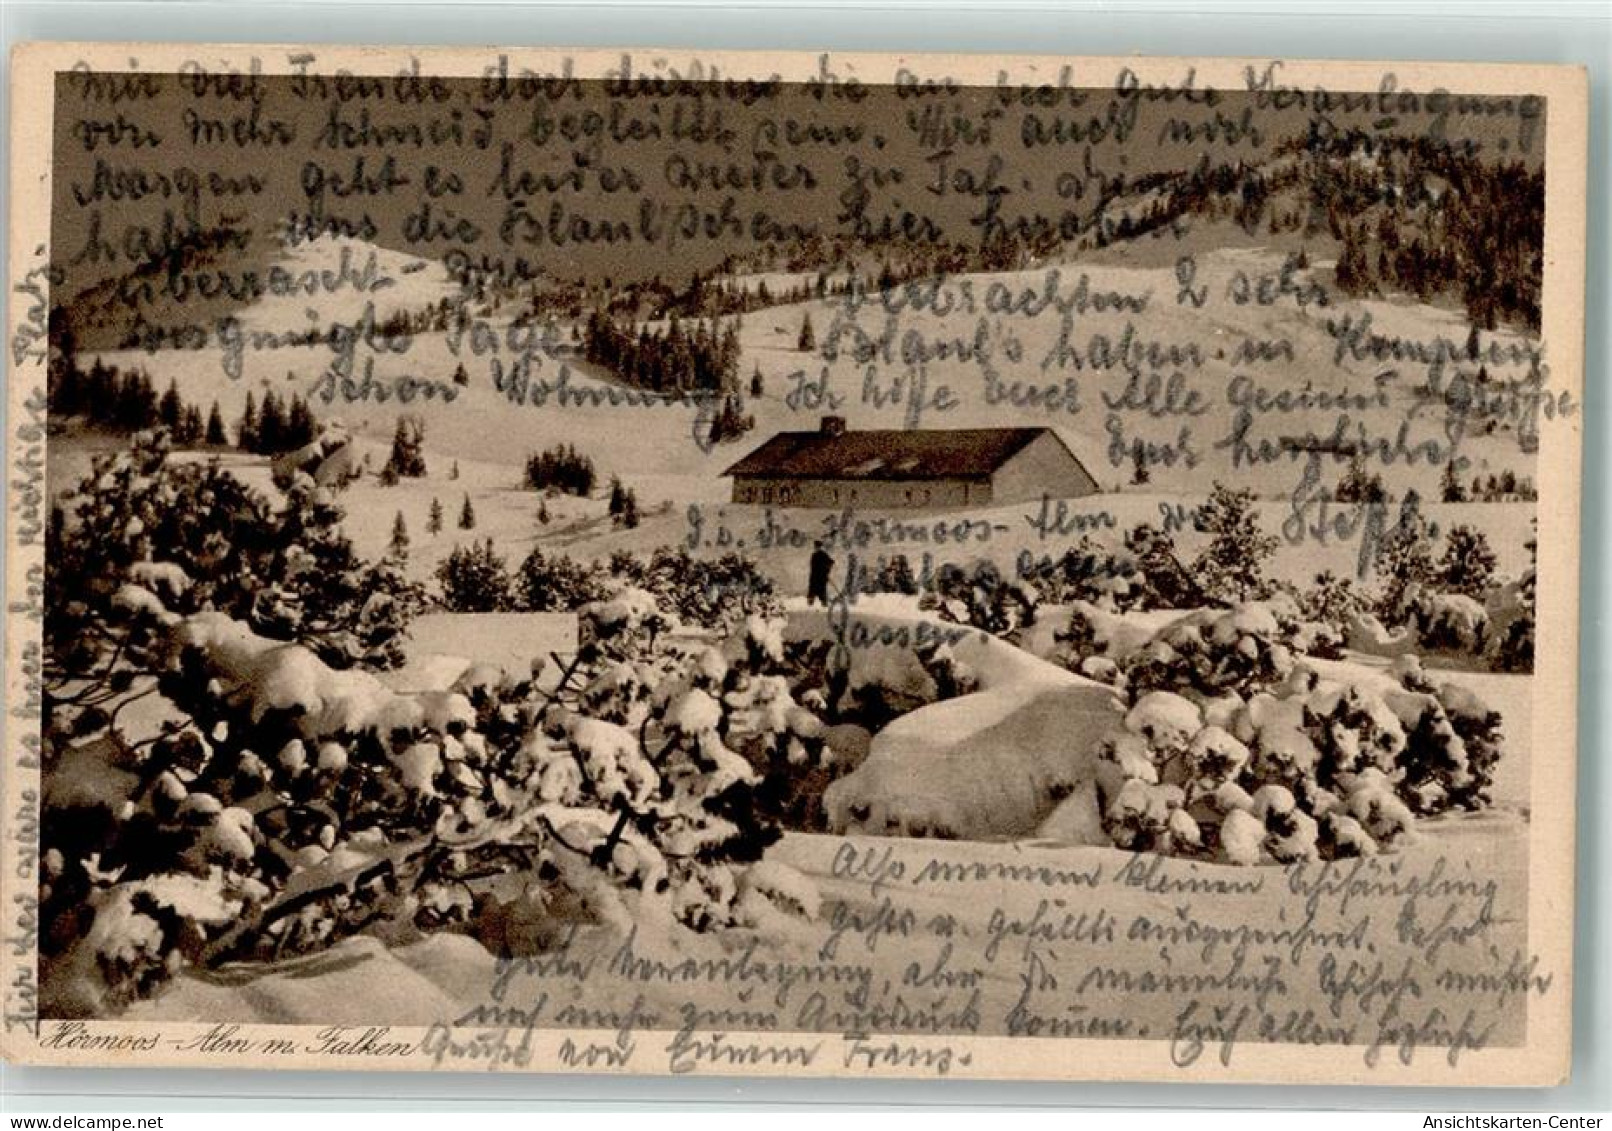 mir viel Freude, doch dürfte die an sich gute Veranlagung
von mehr Schneid begleitet sein. Wird auch noch kommen.
Morgen geht es leider wieder zu Tal. Dienstag
haben uns die Blaul'schen hier heroben
überrascht. Wir verbrachten 2 sehr
vergnügte Tage. Blaul's haben in Kempten
schon Wohnung. Ich hoffe Euch Alle gesund. Grüße
Euch herzlichst
Steff.
D. i. die Hörmoos-Alm, wo
wir Mittagessen
fassen.
Also meinem kleinen Schisäugling
gehts u. gefällts ausgezeichnet. Sehr
gute Veranlagung, aber die männliche Schihose müßte
noch mehr zum Ausdruck kommen. Euch allen herzliche
Grüße von Eurem Franz.
Für Dex wäre es hier der richtige Platz.
Hörmoos-Alm m. Falken
Ansichtskarten-Center